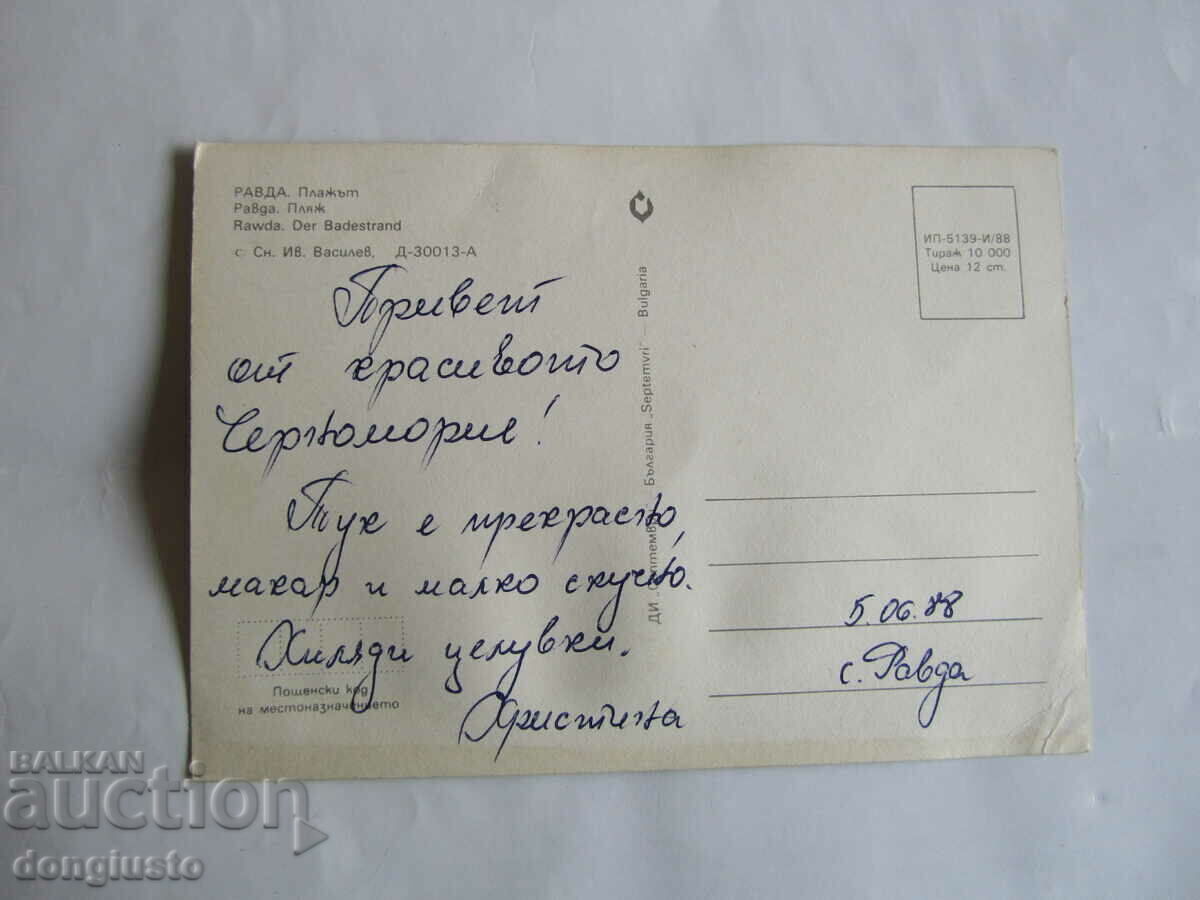 РАВДА. Плажът
Равда. Пляж
Rawda. Der Badestrand
© Сн. Ив. Василев, Д-30013-А
Привет
от красивото
Черноморие!
Тук е прекрасно,
макар и малко скучно.
Хиляди целувки.
Христина
Пощенски код
на местоназначението
ДИ „Септември" — България „Septemvri" — Bulgaria
ИП-5139-И/88
Тираж 10 000
Цена 12 ст.
5.06.88
с. Равда
BALKAN
auction
dongiusto